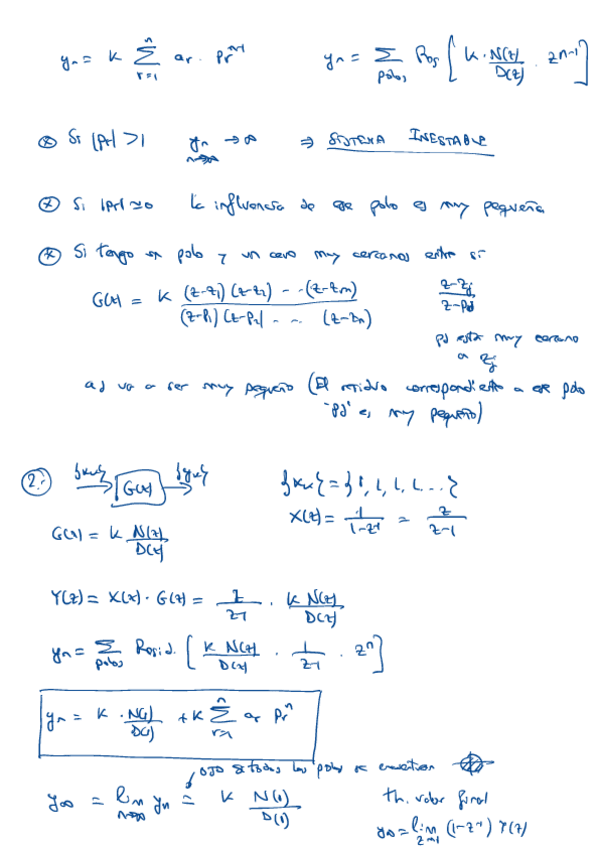 yn = K Σ_{r=1}^{n} ar · Pr^{n-1}     yn = Σ_{polos} Res [ K · N(z)/D(z) · z^{n-1} ]
⊛ Si |Pr| > 1   yn → ∞   n→∞   ⇒ SISTEMA INESTABLE
⊛ Si |Pr| ≃ 0   La influencia de ese polo es muy pequeña
⊛ Si tengo un polo y un cero muy cercanos entre sí
G(z) = K (z-z1)(z-z2) -- (z-zm) / (z-P1)(z-P2) - .. (z-zn)     z-zj / z-Pj
Pj está muy cercano
a zj
aj va a ser muy pequeño (El residuo correspondiente a ese polo
"Pj" es muy pequeño)
2:   {xk} → G(z) → {yk}     {xk} = {1, 1, 1, 1...}
G(z) = K N(z)/D(z)     X(z) = 1/(1-z^{-1}) = z/(z-1)
Y(z) = X(z) · G(z) = z/(z-1) · K N(z)/D(z)
yn = Σ_{polos} Resid. [ K N(z)/D(z) · 1/(z-1) · z^n ]
yn = K · N(1)/D(1) + K Σ_{r=1}^{n} ar Pr^n
OJO si todos los polos se encuentran
y∞ = lim_{n→∞} yn = K N(1)/D(1)     th. valor final
y∞ = lim_{z→1} (1-z^{-1}) Y(z)